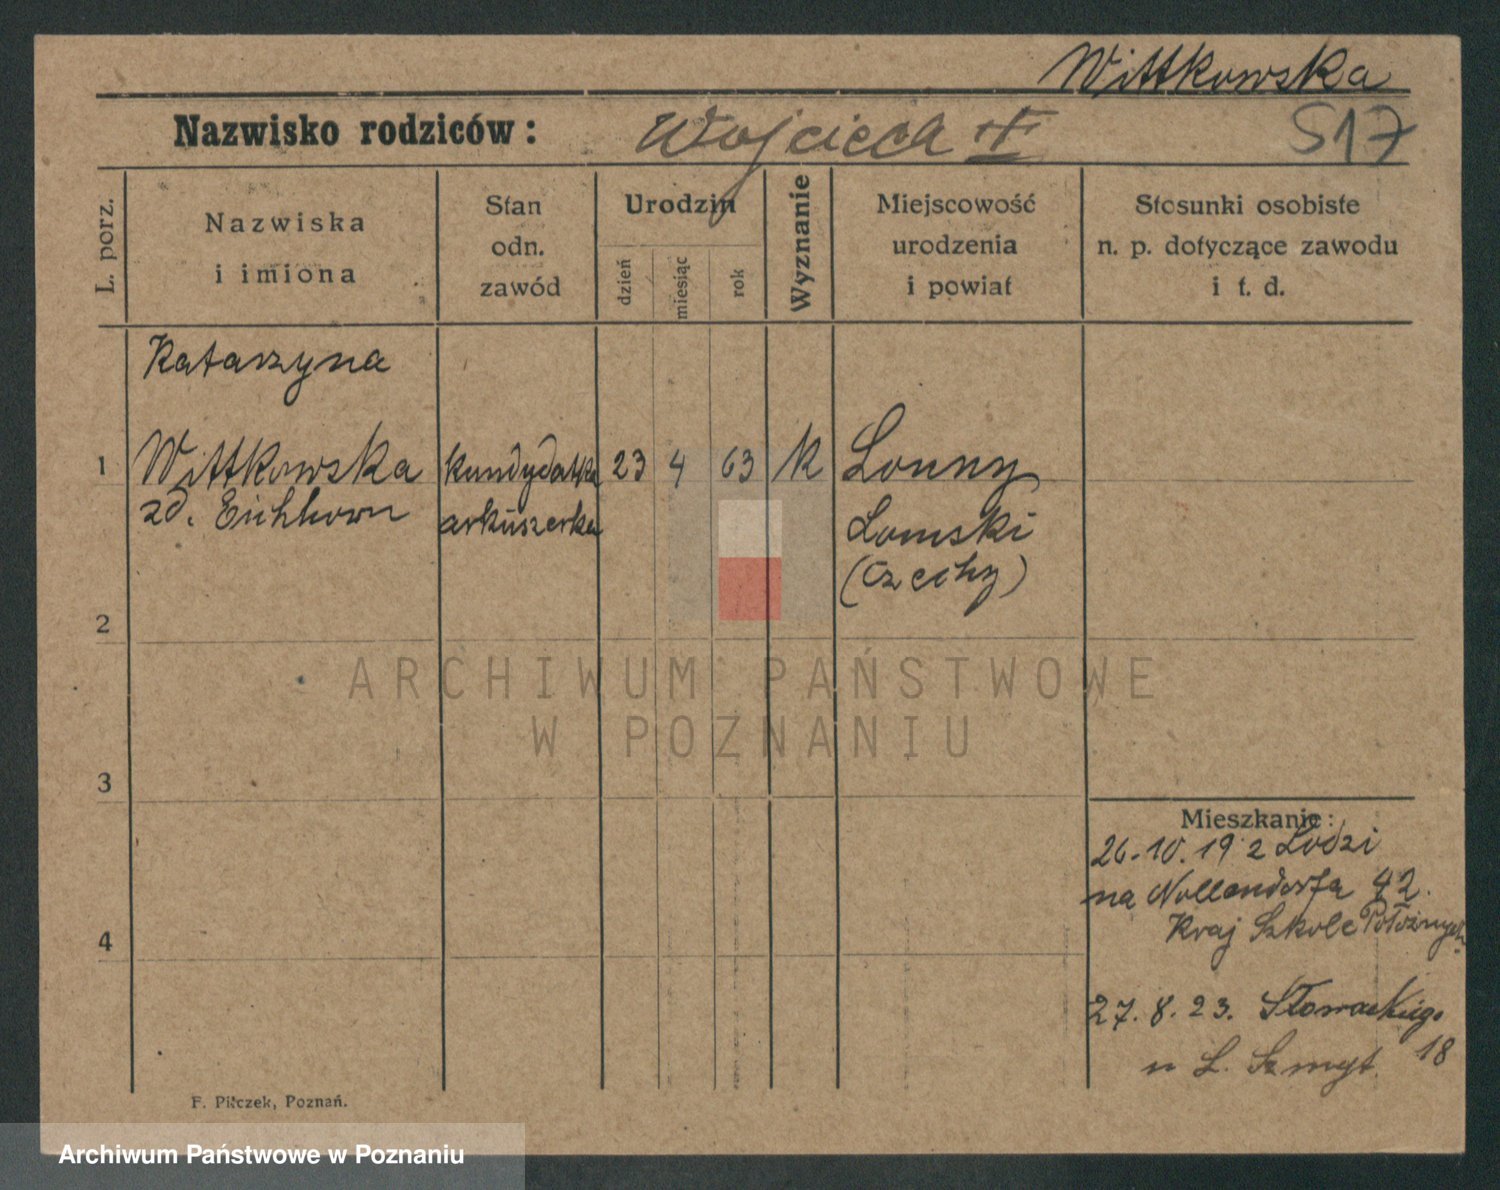 Wittkowska
Nazwisko rodziców: Wojciech 517
L. porz.
Nazwiska
i imiona
Stan
odn.
zawód
Urodzin
dzień
miesiąc
rok
Wyznanie
Miejscowość
urodzenia
i powiat
Stosunki osobiste
n. p. dotyczące zawodu
i t. d.
Katarzyna
1 Wittkowska kandydatka 23 4 63 k Lonny
zd. Eichhorn arkuszerka Lomski
(Czechy)
2
3
4
Mieszkanie:
26.10.19 z Lodzi
na Nollendorfa 42.
Kraj Szkole Położnych
27.8.23. Słowackiego
18
u L. Szmyt
F. Pilczek, Poznań.
ARCHIWUM PAŃSTWOWE
W POZNANIU
Archiwum Państwowe w Poznaniu